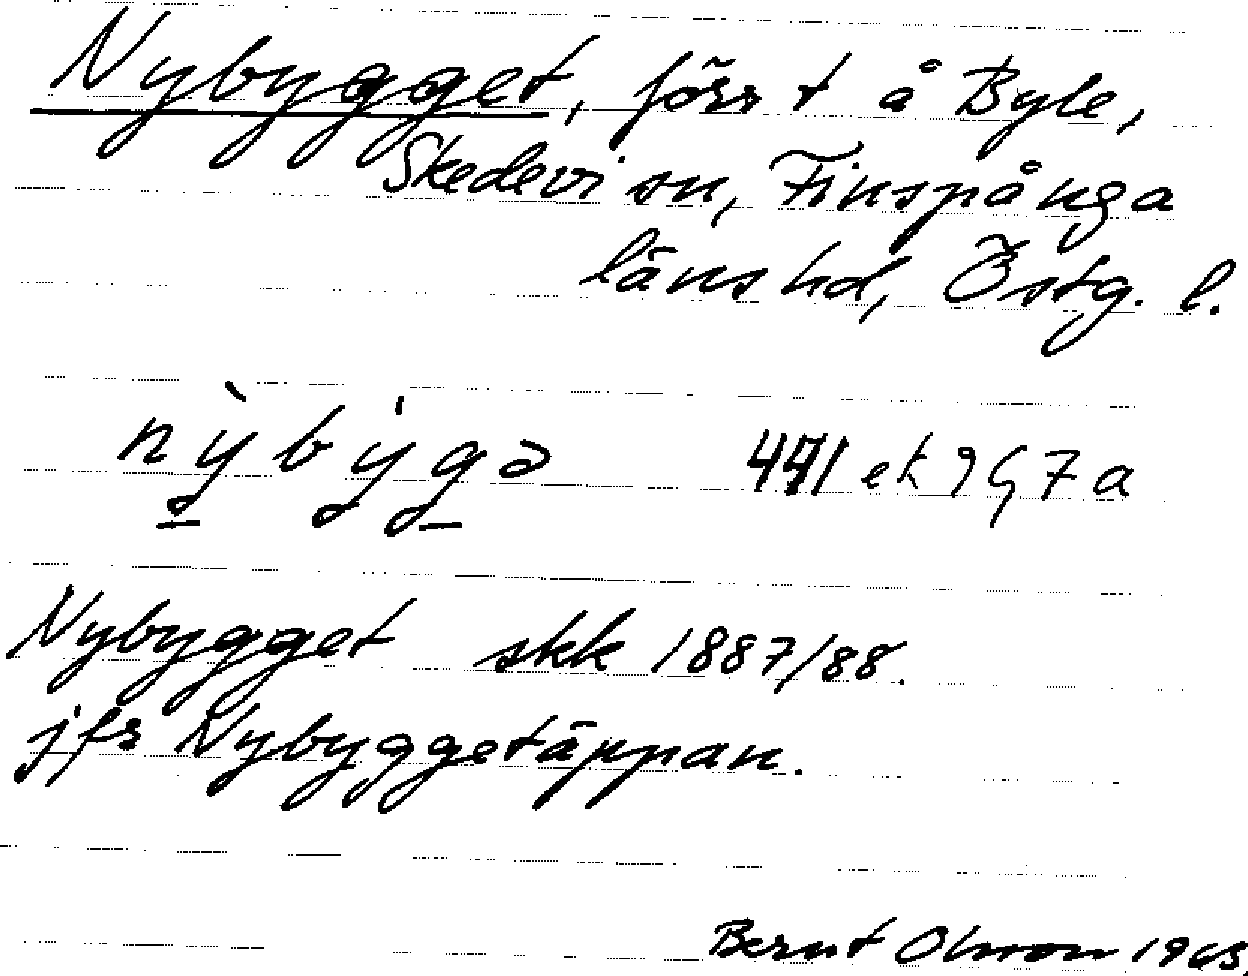 Nybygget, förr t å Byle,
Skedevi sn, Finspånga
läns hd, Östg. l.
nỳbýgə 441 ek 9G7a
Nybygget skk 1887/88.
jfr Nybyggetäppan.
Bernt Olsson 1963.